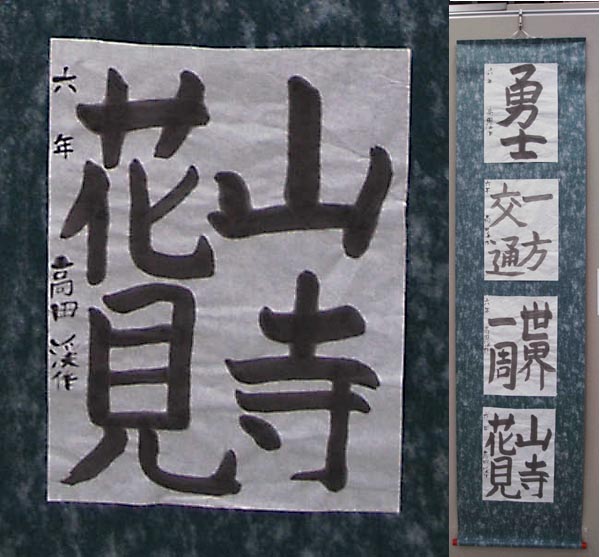 山寺
花見
六年 高田渓作
勇士
一方
交通
世界
一周
山寺
花見